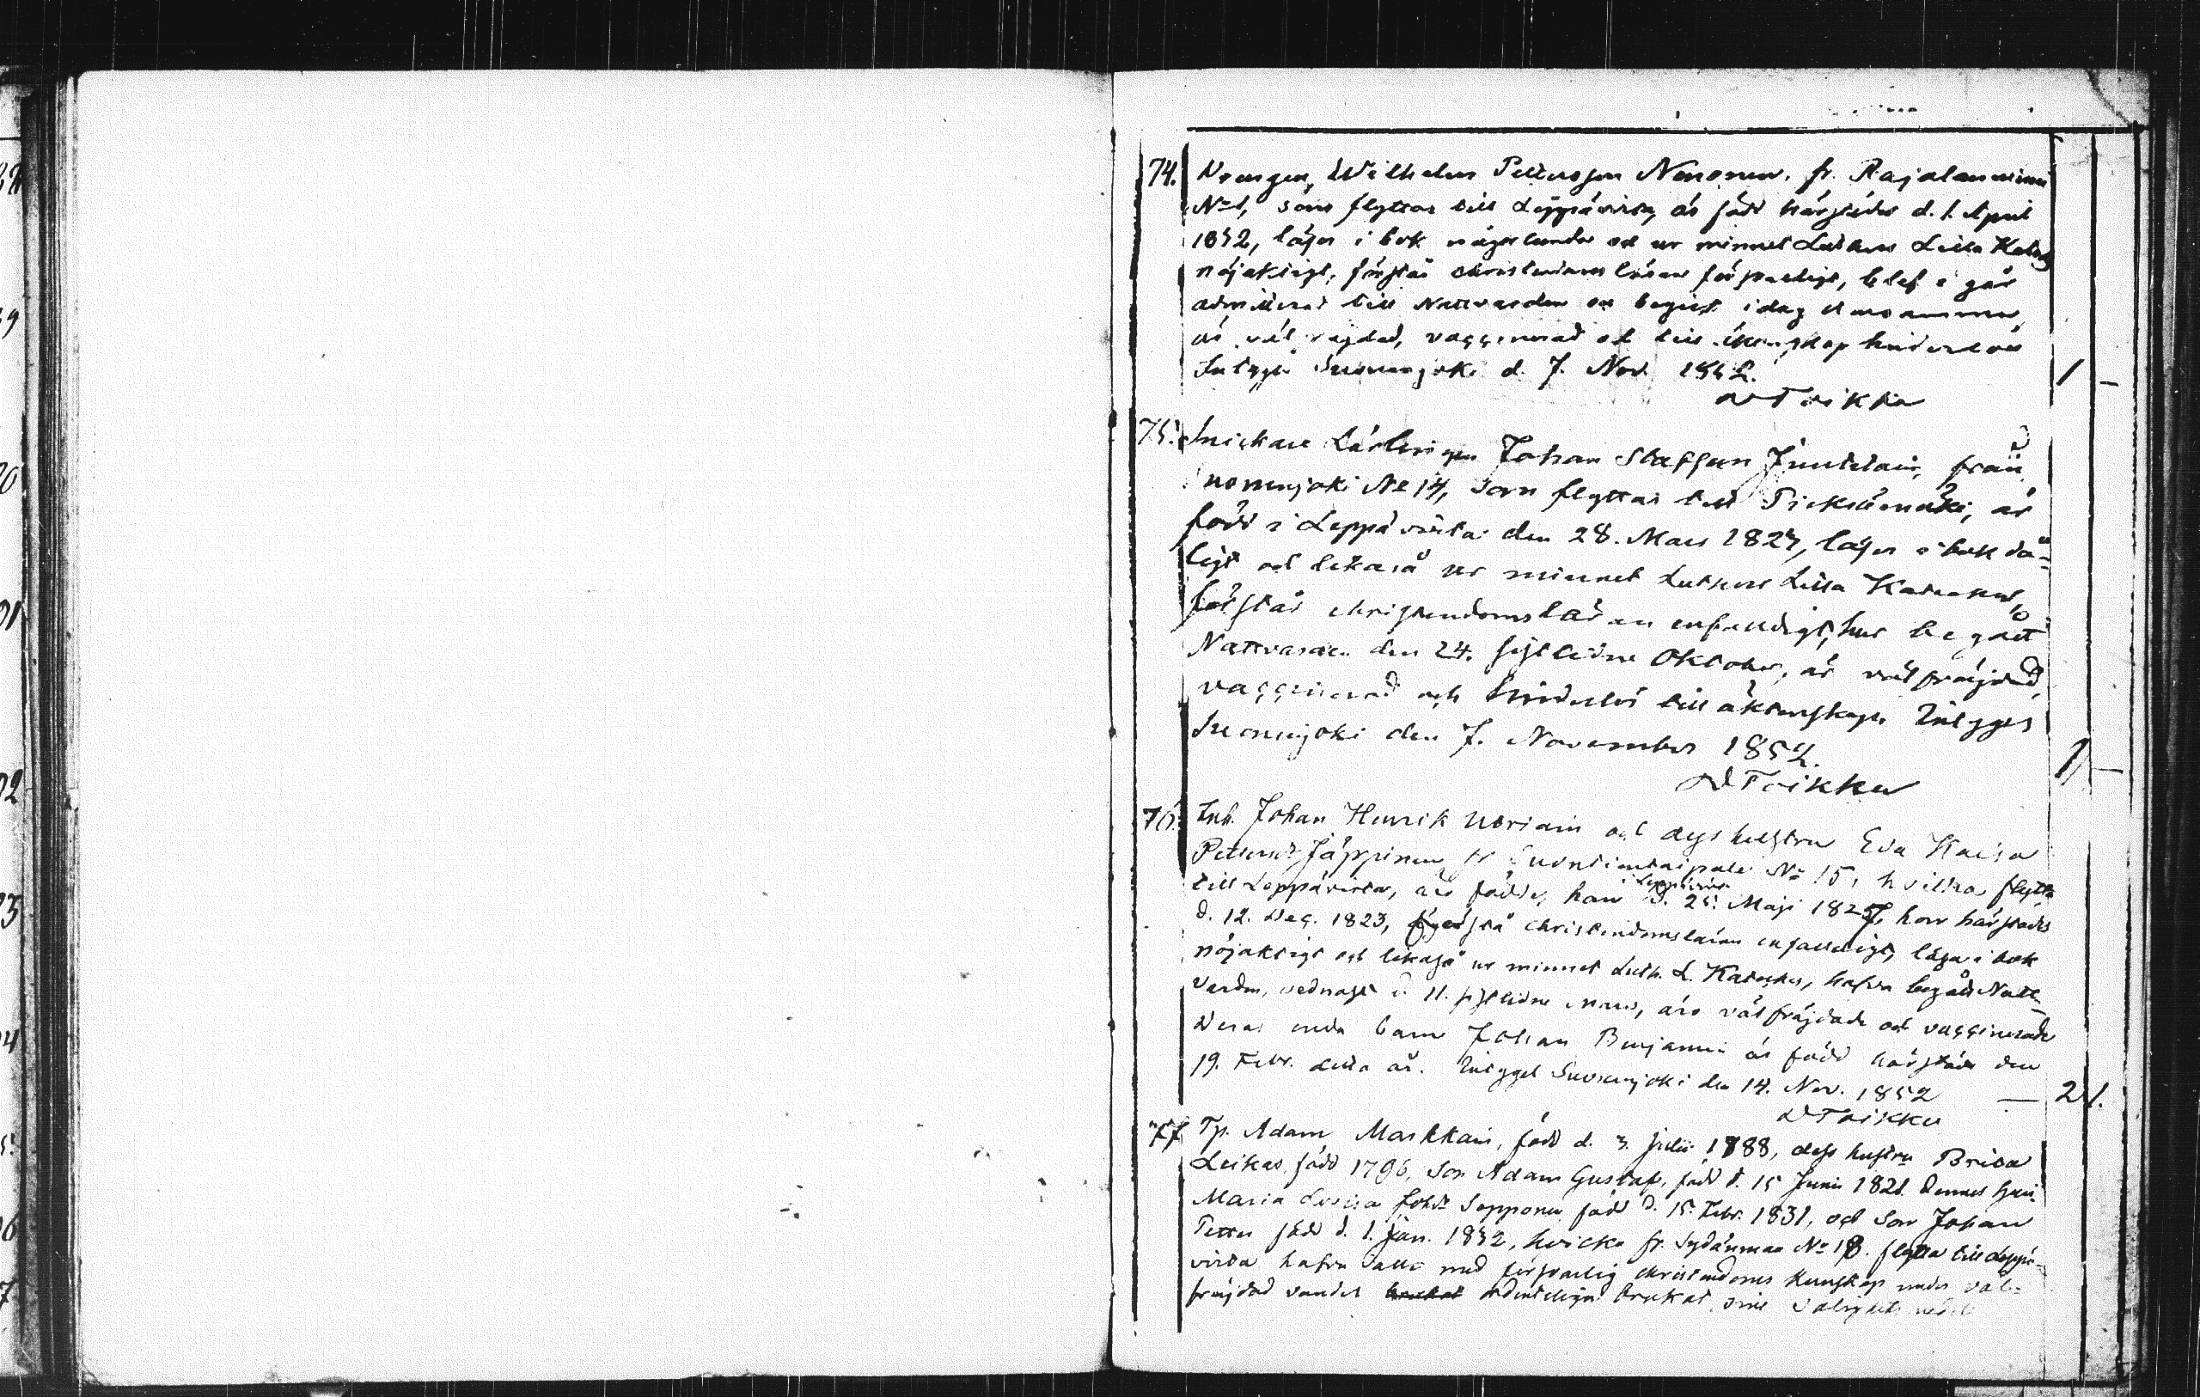 74. Drengen, Wilhelm Pettersson Nenonen, fr. Rajalanniemi
No 1, som flyttar till Leppävirta, är född härstädes d. 1. April
1832, läser i bok någorlunda och ur minnet Lutheri Lilla Katag
nöjaktigt, förstår christendomsläran förswarligt, blef i går
admitterad till Nattvarden och begick i dag densamma,
är väl frejdad, vaccinerad och till äktenskap hinderlös
Intygar Suonenjoki d. 7. Nov. 1852. 1 —
D Toikka
75. Snickare Lärlingen Johan Staffan Jauntelain, från
Suonenjoki No 14, som flyttar till Pieksämäki, är
född i Leppävirta den 28. Mars 1827, läser i bok då-
ligt och likaså ur minnet Lutheri Lilla Kateches,
förstår christendomsläran enfaldigt, har begått
Nattvarden den 24. sistlidne Oktober, är väl fräjdad,
vaccinerad och hinderlös till äktenskap. Intygas
Suonenjoki den 7. November 1852. 1 —
D Toikka
76. Inh. Johan Henrik Väriäin och dess hustru Eva Kaisa
Pettersdr Jäppinen, fr Suontientaipale No 15, hvilka flytta
till Leppävirta, äro födde, han i Leppävirta d. 25. Maji 1827, hon härstädes
d. 12. Dec. 1823, förstå christendomsläran enfaldigt, läsa i bok
nöjaktigt och likaså ur minnet Luth. L. Kateches, hafva begått Natt-
varden, sednast d. 11. sistlidne Mars, äro väl fräjdade och vaccinerade
Deras enda barn Johan Benjamin är född härstädes den
19. Febr. detta år. Intygas Suonenjoki den 14. Nov. 1852 — 2 1.
D Toikka
77. Tp. Adam Markkain, född d. 3. Julii 1788, dess hustru Brita
Leikas, född 1796, Son Adam Gustaf, född d. 15 Junii 1821. Dennes hust.
Maria Lovisa Johdr Sopponen född d. 15. Febr. 1831, och Son Johan
Petter född d. 1. Jan. 1852, hvilka fr. Sydänmaa No 18. flytta till Leppä-
virta hafva alla med förswarlig christendoms kunskap under väl-
fräjdad vandel ordenteligen brukat sine salighets medel